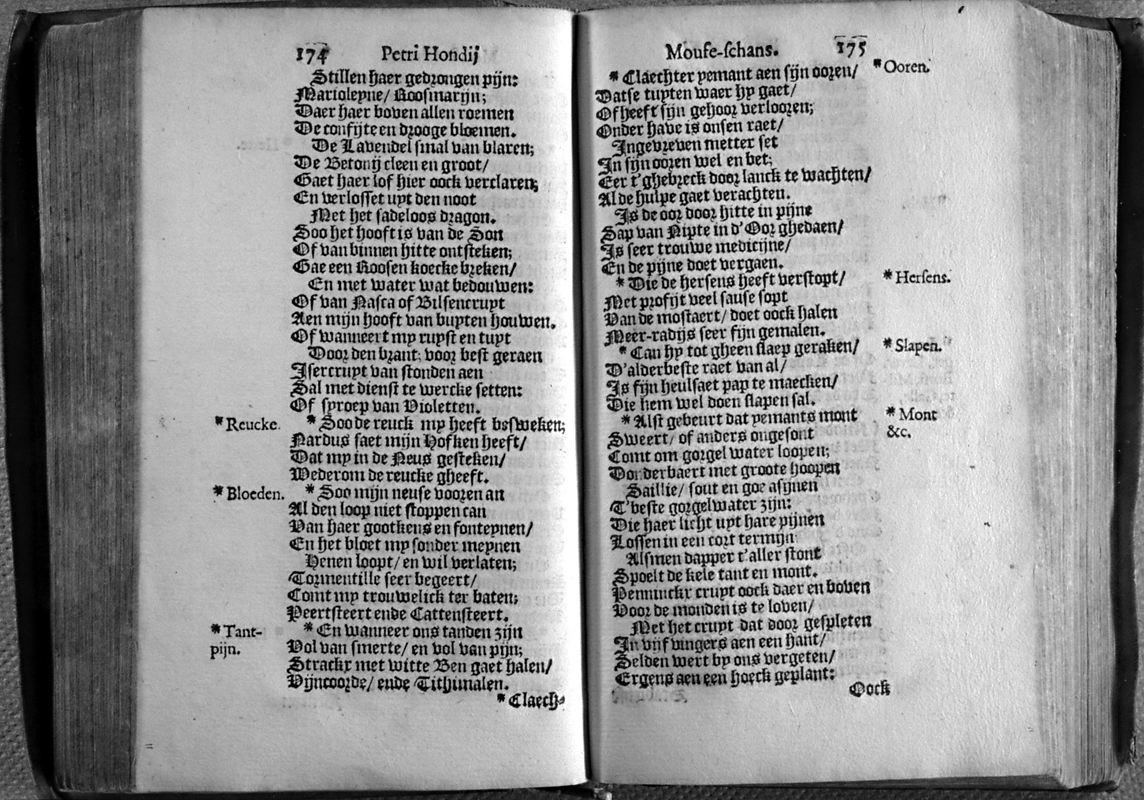 174 Petri Hondij
Stillen haer gedrongen pijn:
Mariolepne/ Roosmarijn;
Daer haer boven allen roemen
De confijte en drooge bloemen.
De Lavendel smal van blaren;
De Betonij cleen en groot/
Gaet haer lof hier oock verclaren;
En verlosset uyt den noot
Met het sadeloos dragon.
Soo het hooft is van de Son
Of van binnen hitte ontsteken;
Gae een Roosen koecke breken/
En met water wat bedouwen:
Of van Nasca of Bilsencruyt
Aen mijn hooft van buyten houwen.
Of wanneert my ruyst en tuyt
Door den brant; voor best geraen
Isercruyt van stonden aen
Sal met dienst te wercke setten:
Of syroep van Violetten.
* Reucke. * Soo de reuck my heeft besweken;
Nardus saet mijn Hofken heeft/
Dat my in de Neus gesteken/
Wederom de reucke gheeft.
* Bloeden. * Soo mijn neuse vooren an
Al den loop niet stoppen can
Van haer gootkens en fonteynen/
En het bloet my sonder meynen
Henen loopt/ en wil verlaten;
Tormentille seer begeert/
Comt my trouwelick ter baten;
Peertsteert ende Cattensteert.
* Tant-
pijn.
* En wanneer ons tanden zijn
Vol van smerte/ en vol van pijn;
Strackx met witte Ben gaet halen/
Vijncoorde/ ende Tithimalen.
* Claech-
Mouse-schans. 175
* Claechter yemant aen sijn ooren/ * Ooren.
Datse tuyten waer hy gaet/
Of heeft sijn gehoor verlooren;
Onder have is onsen raet/
Ingevreven metter set
In sijn ooren wel en bet;
Eer t'ghebreck door lanck te wachten/
Al de hulpe gaet verachten.
Is de oor door hitte in pijne
Sap van Nipte in d'Oor ghedaen/
Is seer trouwe medicijne/
En de pijne doet vergaen.
* Die de hersens heeft verstopt/ * Hersens.
Met profijt veel sause sopt
Van de mostaert/ doet oock halen
Meer-radijs seer fijn gemalen.
* Can hy tot gheen slaep geraken/ * Slapen.
D'alderbeste raet van al/
Is fijn heulsaet pap te maecken/
Die hem wel doen slapen sal.
* Alst gebeurt dat yemants mont * Mont
&c.
Sweert/ of anders ongesont
Comt om gorgel water loopen;
Donderbaert met groote hoopen
Saillie/ sout en goe asynen
T'beste gorgelwater zijn:
Die haer licht uyt hare pijnen
Lossen in een cort termijn
Alsmen dapper t'aller stont
Spoelt de kele tant en mont.
Penninckx cruyt oock daer en boven
Voor de monden is te loven/
Met het cruyt dat door gespleten
In vijf vingers aen een hant/
Selden wert by ons vergeten/
Ergens aen een hoeck geplant:
Oock